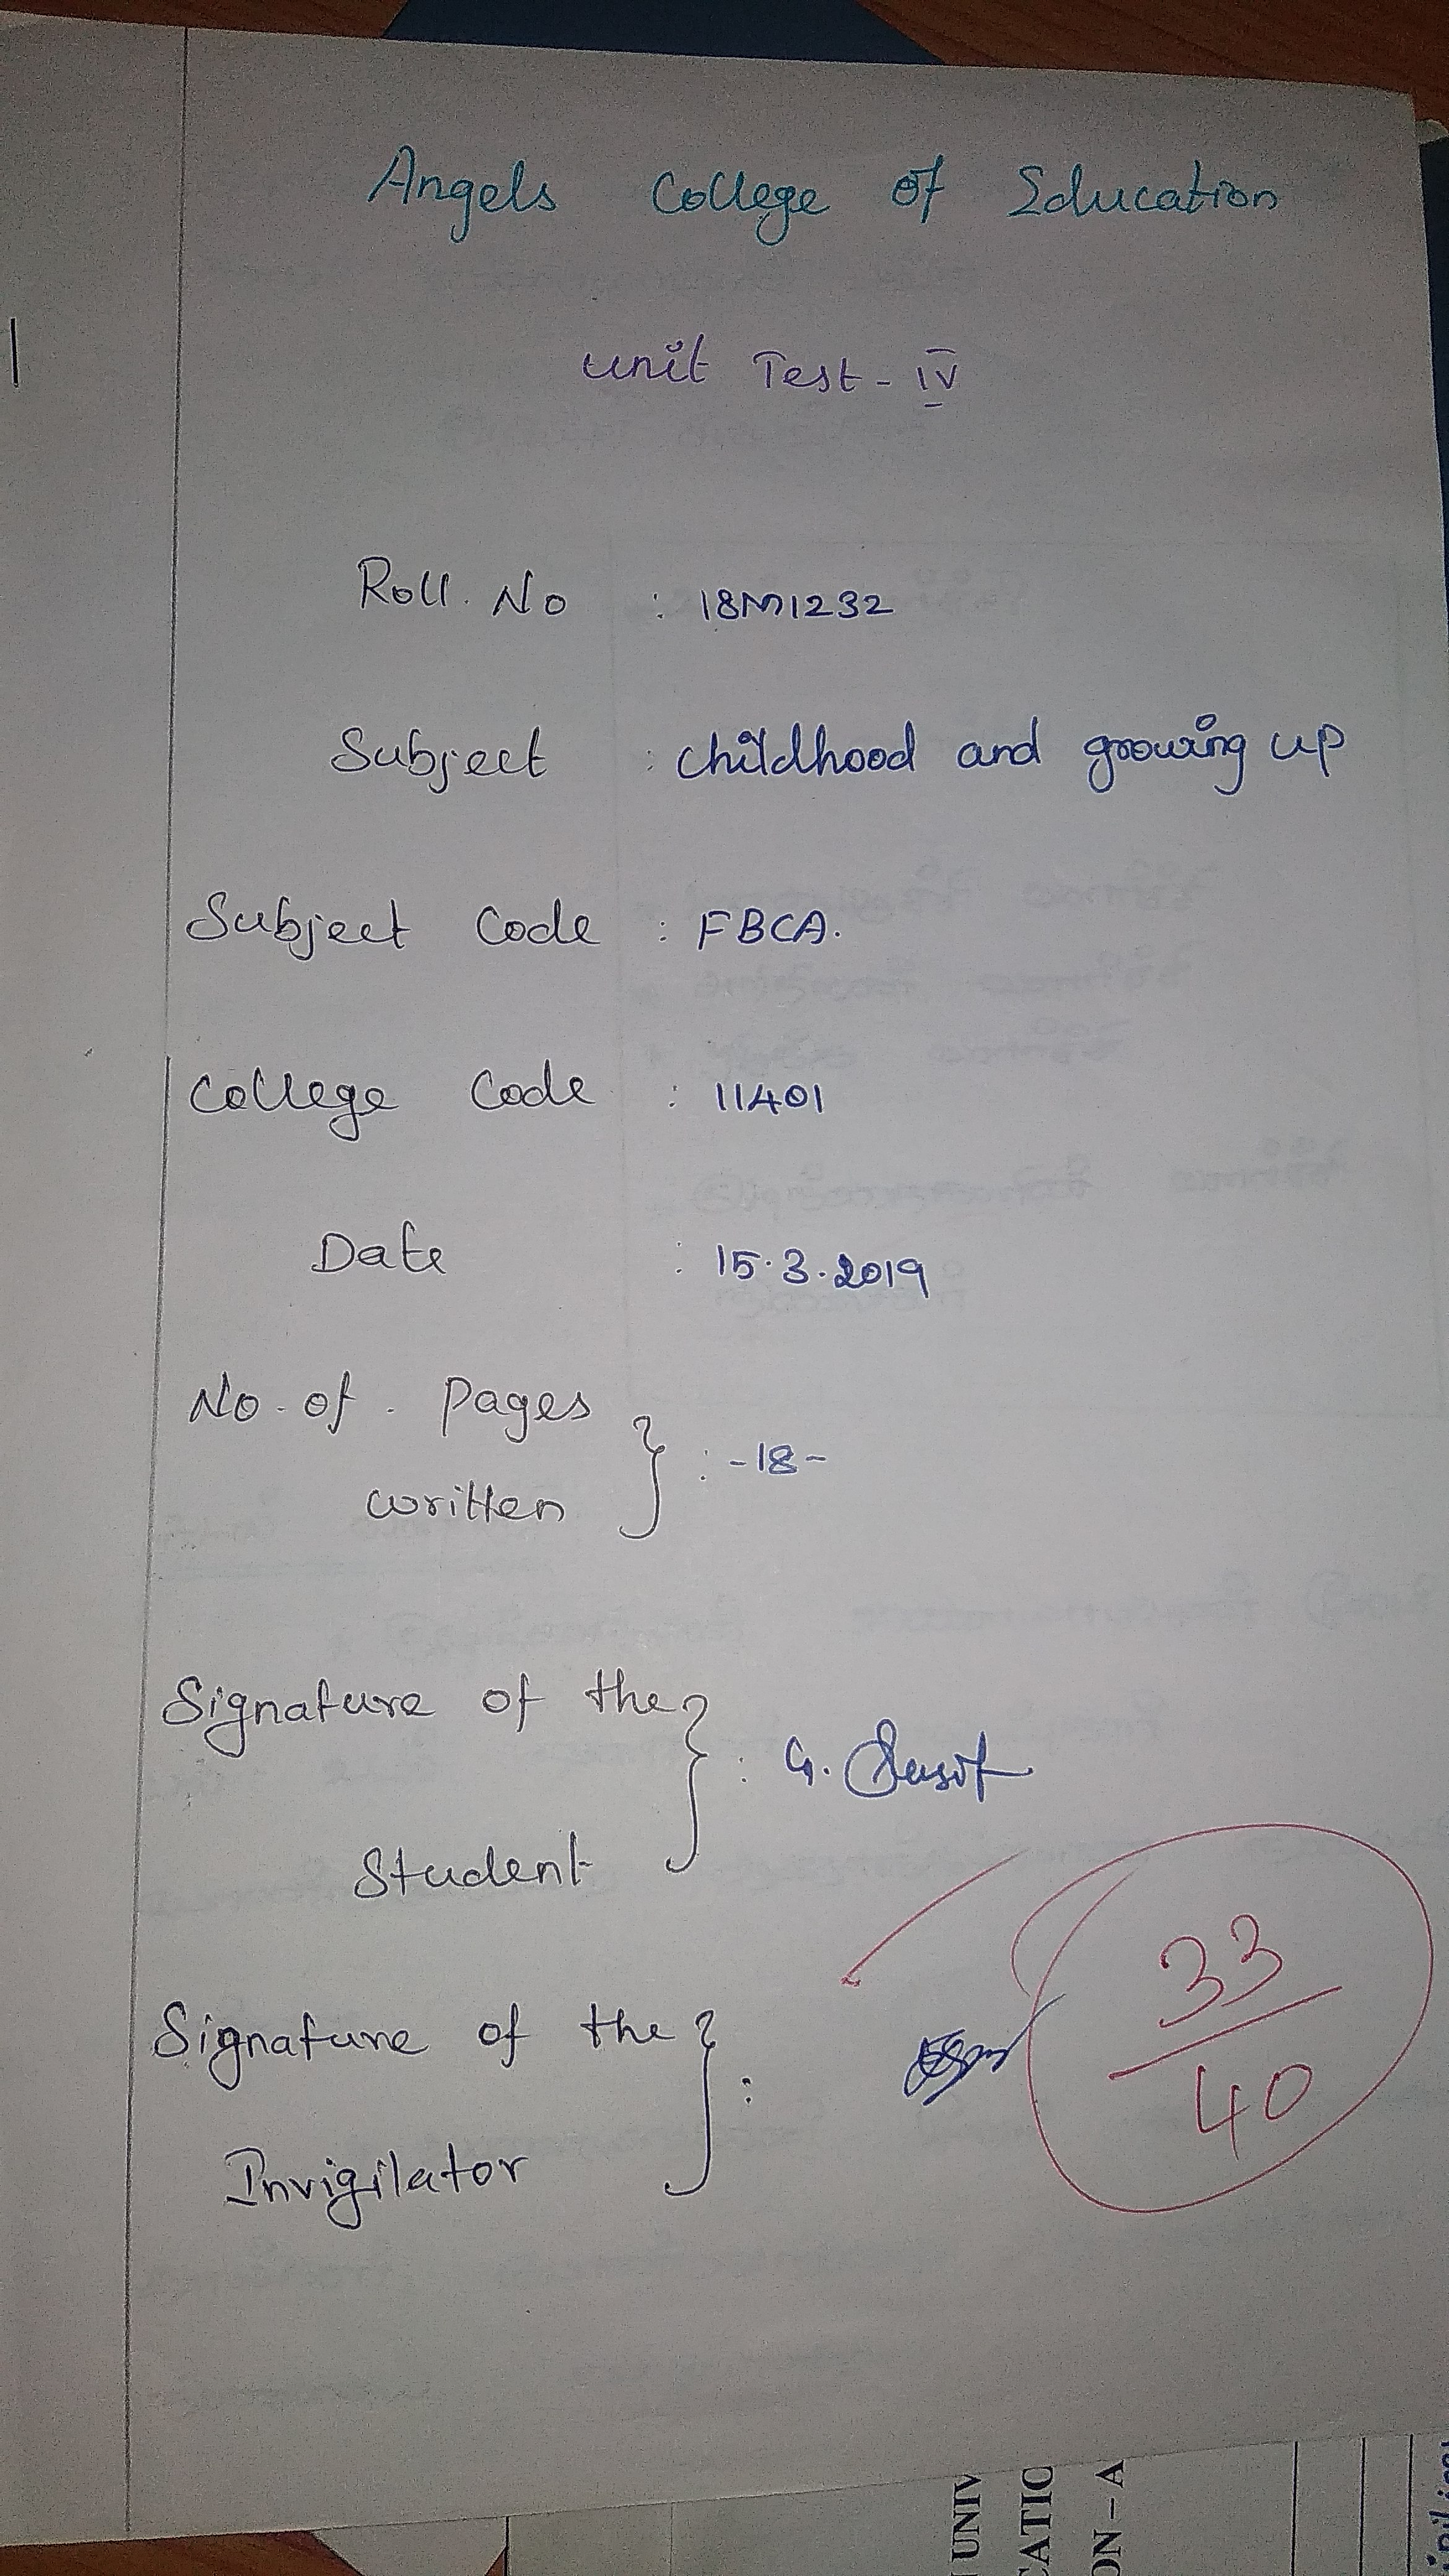 Angels College of Education
Unit Test - IV
Roll. No : 18M1232
Subject : childhood and growing up
Subject Code : FBCA.
College Code : 11401
Date : 15.3.2019
No. of. pages
written } : -18-
Signature of the
Student } : G.
Signature of the
Invigilator } :
33
40
UNIV
CATIO
ON – A